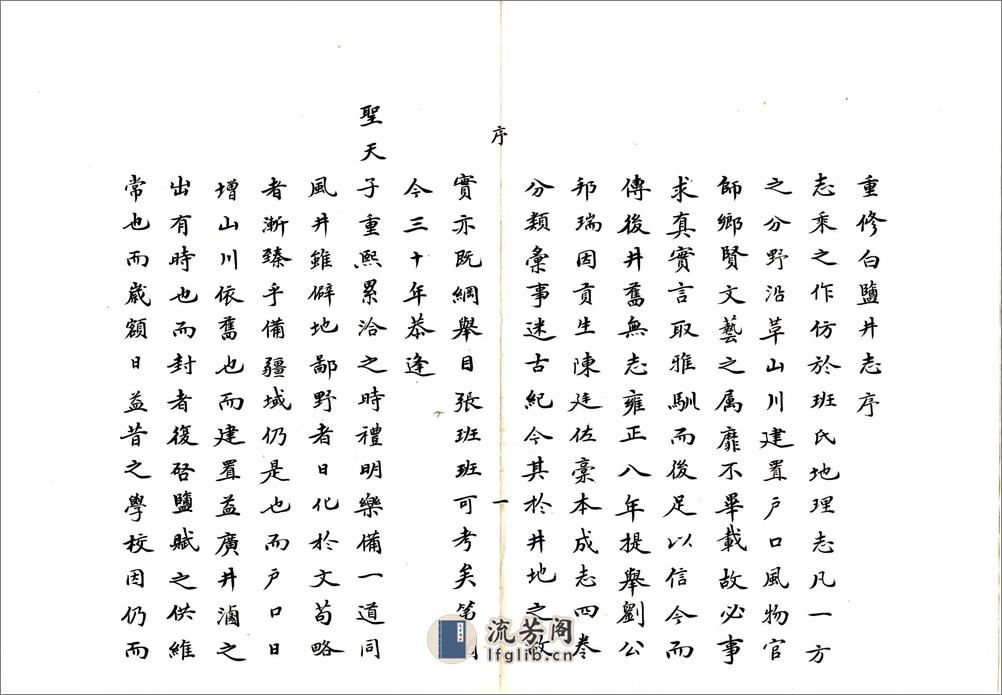 重修白鹽井志序
志乘之作仿於班氏地理志凡一方
之分野沿革山川建置戶口風物官
師鄉賢文藝之属靡不畢載故必事
求真實言取雅馴而後足以信今而
傳後井舊無志雍正八年提舉劉公
邦瑞因貢生陳廷佐稾本成志四卷
分類彙事述古紀今其於井地之故
序
一
實亦既綱舉目張班班可考矣第
今三十年恭逢
聖天子重熙累洽之時禮明樂備一道同
風井雖僻地鄙野者日化於文苟略
者漸臻乎備疆域仍是也而戶口日
增山川依舊也而建置益廣井滷之
出有時也而封者復啓鹽賦之供維
常也而歲額日益昔之學校因仍而
流芳阁
lfglib.cn